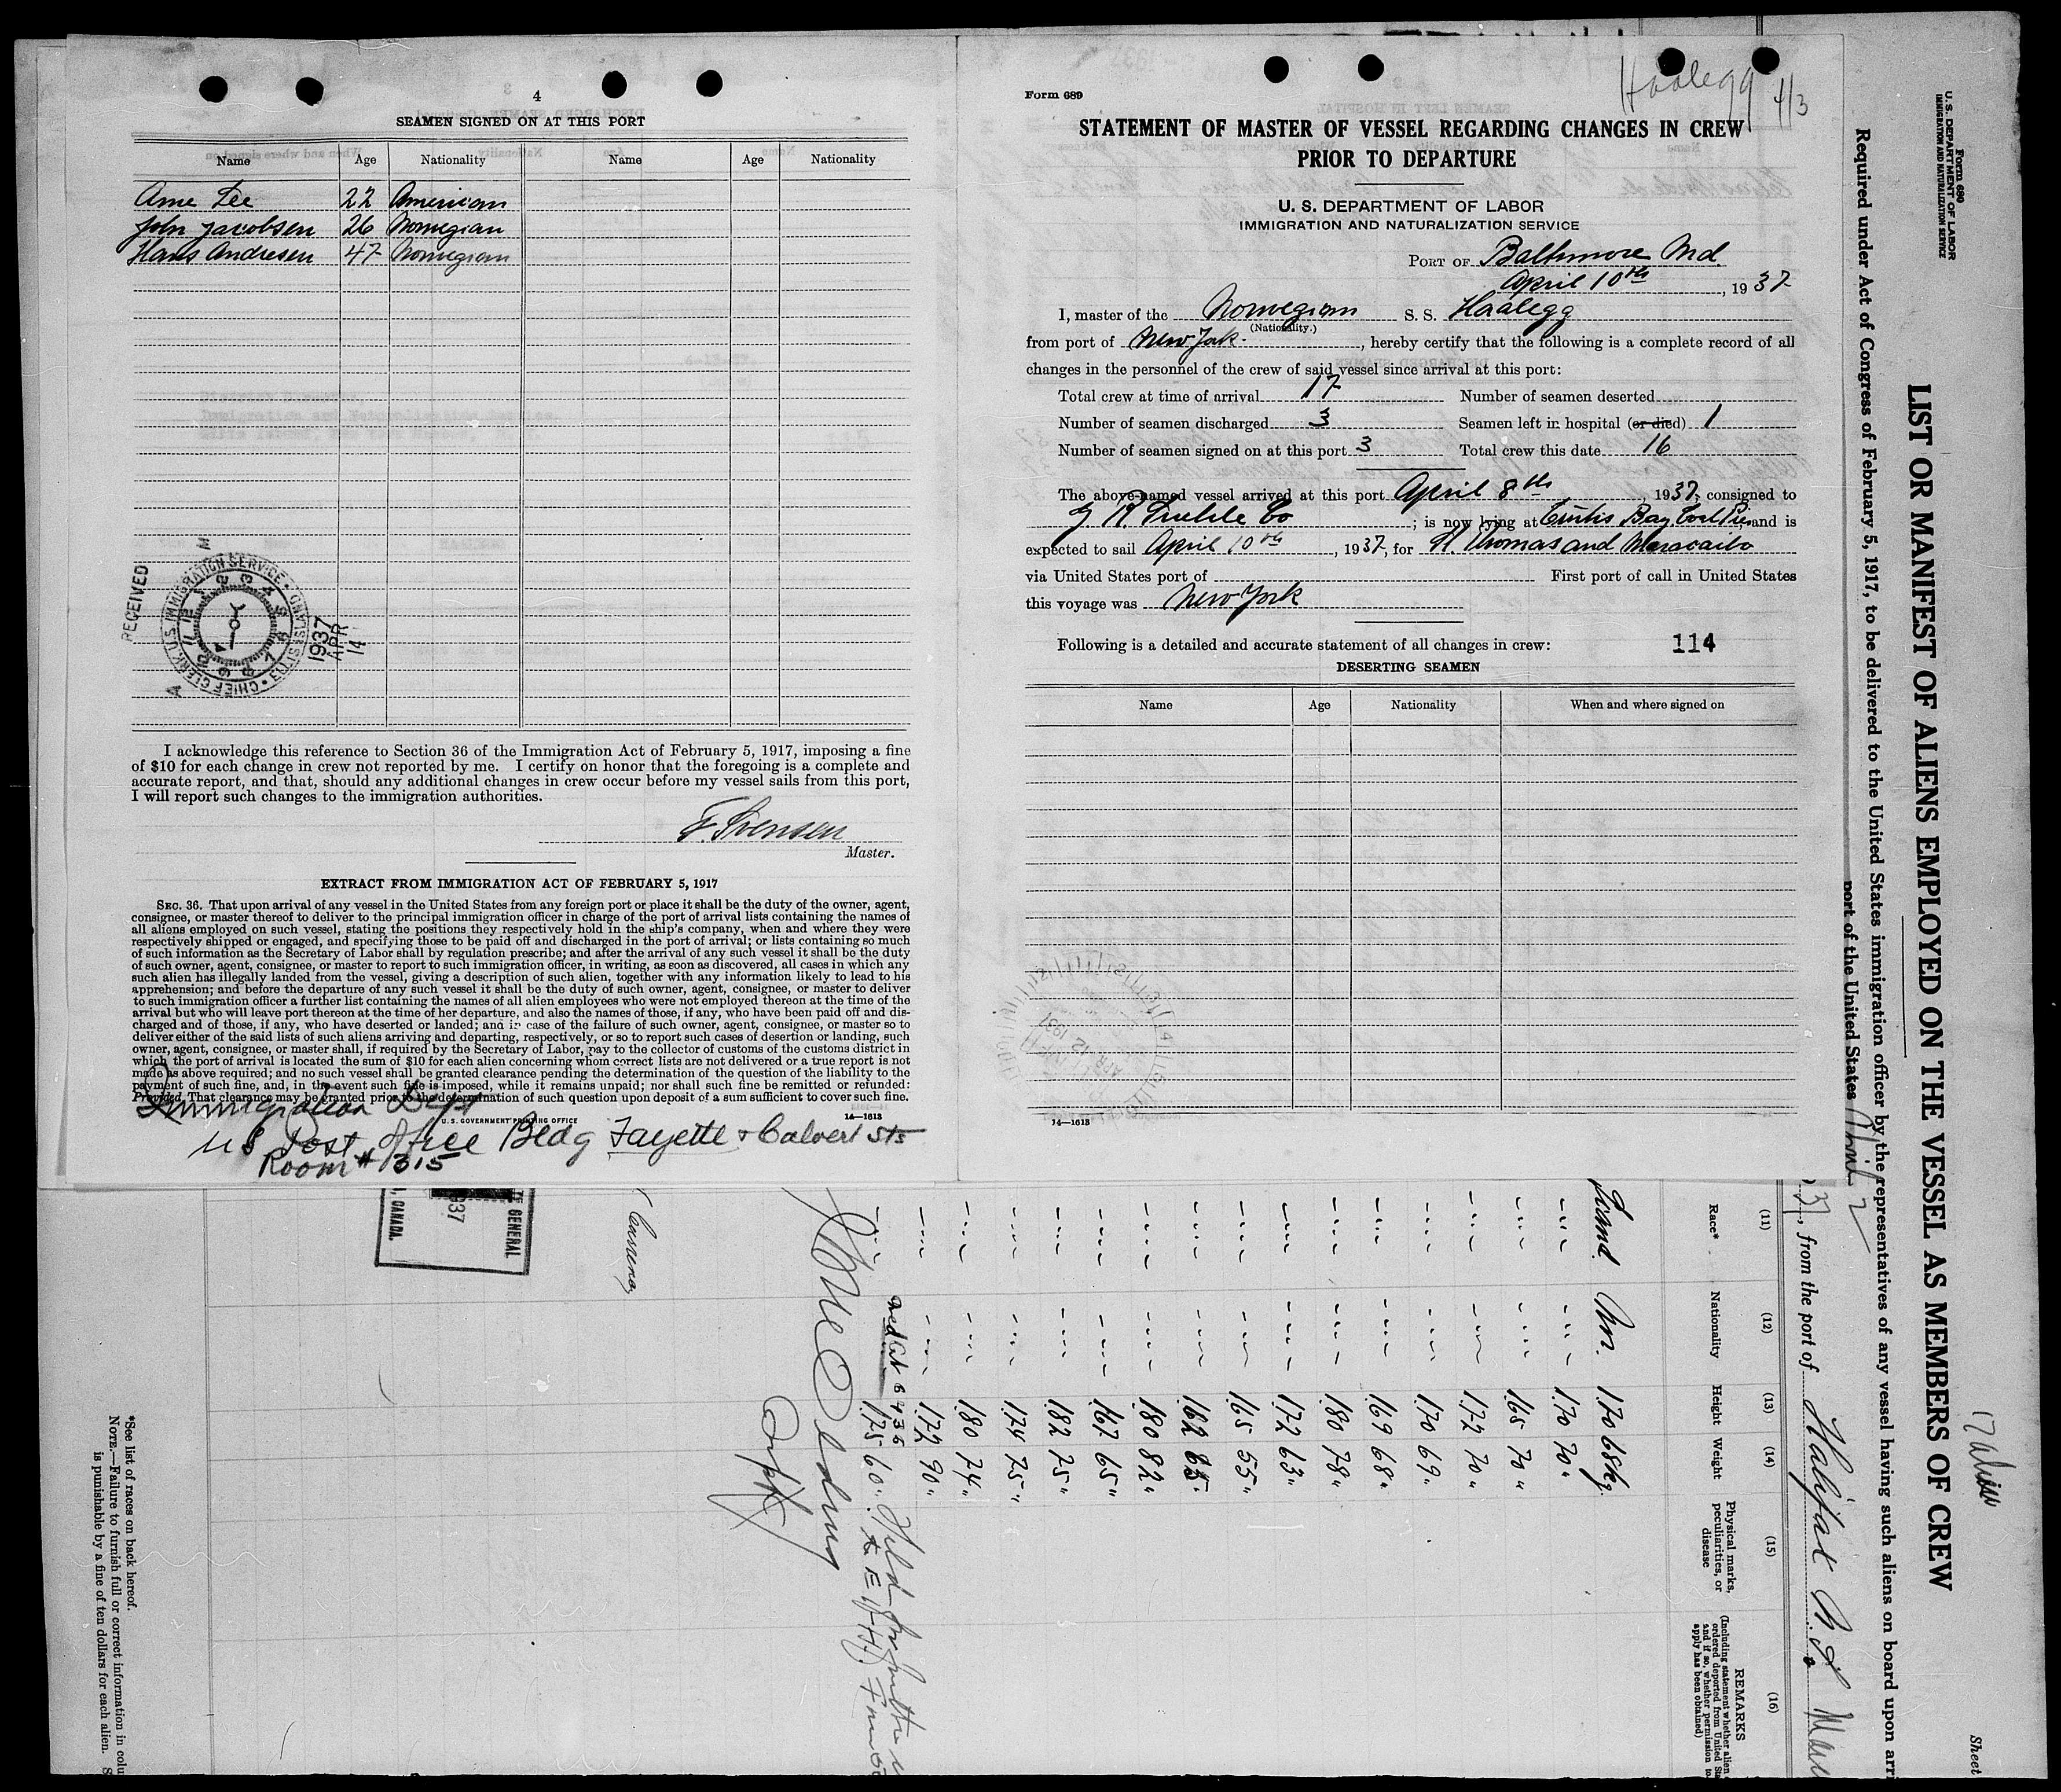 4
SEAMEN SIGNED ON AT THIS PORT
Name Age Nationality Name Age Nationality
Arne Lee 22 American
John Jacobsen 26 Norwegian
Hans Andresen 47 Norwegian
RECEIVED
CHIEF CLERK U.S. IMMIGRATION SERVICE
1937
APR
14
I acknowledge this reference to Section 36 of the Immigration Act of February 5, 1917, imposing a fine
of $10 for each change in crew not reported by me. I certify on honor that the foregoing is a complete and
accurate report, and that, should any additional changes in crew occur before my vessel sails from this port,
I will report such changes to the immigration authorities.
F. Svensen
Master.
EXTRACT FROM IMMIGRATION ACT OF FEBRUARY 5, 1917
SEC. 36. That upon arrival of any vessel in the United States from any foreign port or place it shall be the duty of the owner, agent,
consignee, or master thereof to deliver to the principal immigration officer in charge of the port of arrival lists containing the names of
all aliens employed on such vessel, stating the positions they respectively hold in the ship's company, when and where they were
respectively shipped or engaged, and specifying those to be paid off and discharged in the port of arrival; or lists containing so much
of such information as the Secretary of Labor shall by regulation prescribe; and after the arrival of any such vessel it shall be the duty
of such owner, agent, consignee, or master to report to such immigration officer, in writing, as soon as discovered, all cases in which any
such alien has illegally landed from the vessel, giving a description of such alien, together with any information likely to lead to his
apprehension; and before the departure of any such vessel it shall be the duty of such owner, agent, consignee, or master to deliver
to such immigration officer a further list containing the names of all alien employees who were not employed thereon at the time of the
arrival but who will leave port thereon at the time of her departure, and also the names of those, if any, who have been paid off and dis-
charged and of those, if any, who have deserted or landed; and in case of the failure of such owner, agent, consignee, or master so to
deliver either of the said lists of such aliens arriving and departing, respectively, or so to report such cases of desertion or landing, such
owner, agent, consignee, or master shall, if required by the Secretary of Labor, pay to the collector of customs of the customs district in
which the port of arrival is located the sum of $10 for each alien concerning whom correct lists are not delivered or a true report is not
made as above required; and no such vessel shall be granted clearance pending the determination of the question of the liability to the
payment of such fine, and, in the event such fine is imposed, while it remains unpaid; nor shall such fine be remitted or refunded:
Provided, That clearance may be granted prior to the determination of such question upon deposit of a sum sufficient to cover such fine.
U. S. GOVERNMENT PRINTING OFFICE 14—1613
Immigration Dept
US Post Office Bldg Fayette & Calvert Sts
Room # 315
Haalegg 4/3
Form 689
STATEMENT OF MASTER OF VESSEL REGARDING CHANGES IN CREW
PRIOR TO DEPARTURE
U. S. DEPARTMENT OF LABOR
IMMIGRATION AND NATURALIZATION SERVICE
PORT OF Baltimore Md.
April 10th, 1937
I, master of the Norwegian S. S. Haalegg
(Nationality.)
from port of New York, hereby certify that the following is a complete record of all
changes in the personnel of the crew of said vessel since arrival at this port:
Total crew at time of arrival 17 Number of seamen deserted
Number of seamen discharged 3 Seamen left in hospital (or died) 1
Number of seamen signed on at this port 3 Total crew this date 16
The above-named vessel arrived at this port April 8th, 1937, consigned to
Co; is now lying at Curtis Bay Coal Pier, and is
expected to sail April 10th, 1937, for St. Thomas and Maracaibo
via United States port of First port of call in United States
this voyage was New York
Following is a detailed and accurate statement of all changes in crew: 114
DESERTING SEAMEN
Name Age Nationality When and where signed on
APR 12 1937
14—1613
Form 689
U. S. DEPARTMENT OF LABOR
IMMIGRATION AND NATURALIZATION SERVICE
LIST OR MANIFEST OF ALIENS EMPLOYED ON THE VESSEL AS MEMBERS OF CREW
Required under Act of Congress of February 5, 1917, to be delivered to the United States immigration officer by the representatives of any vessel having such aliens on board upon arri
port of the United States
April 2
37, from the port of Halifax N.S.
Sheet
(11) (12) (13) (14) (15) (16)
Race* Nationality Height Weight Physical marks, peculiarities, or disease REMARKS
Scand. Nn. 170 68 kg.
170 70 "
165 70 "
172 70 "
170 69 "
169 68 "
180 78 "
172 63 "
165 55 "
162 65 "
180 82 "
167 65 "
182 75 "
174 75 "
180 74 "
172 90 "
175 60 "
GENERAL
CANADA.
*See list of races on back hereof.
NOTE.—Failure to furnish full or correct information in colu
is punishable by a fine of ten dollars for each alien.